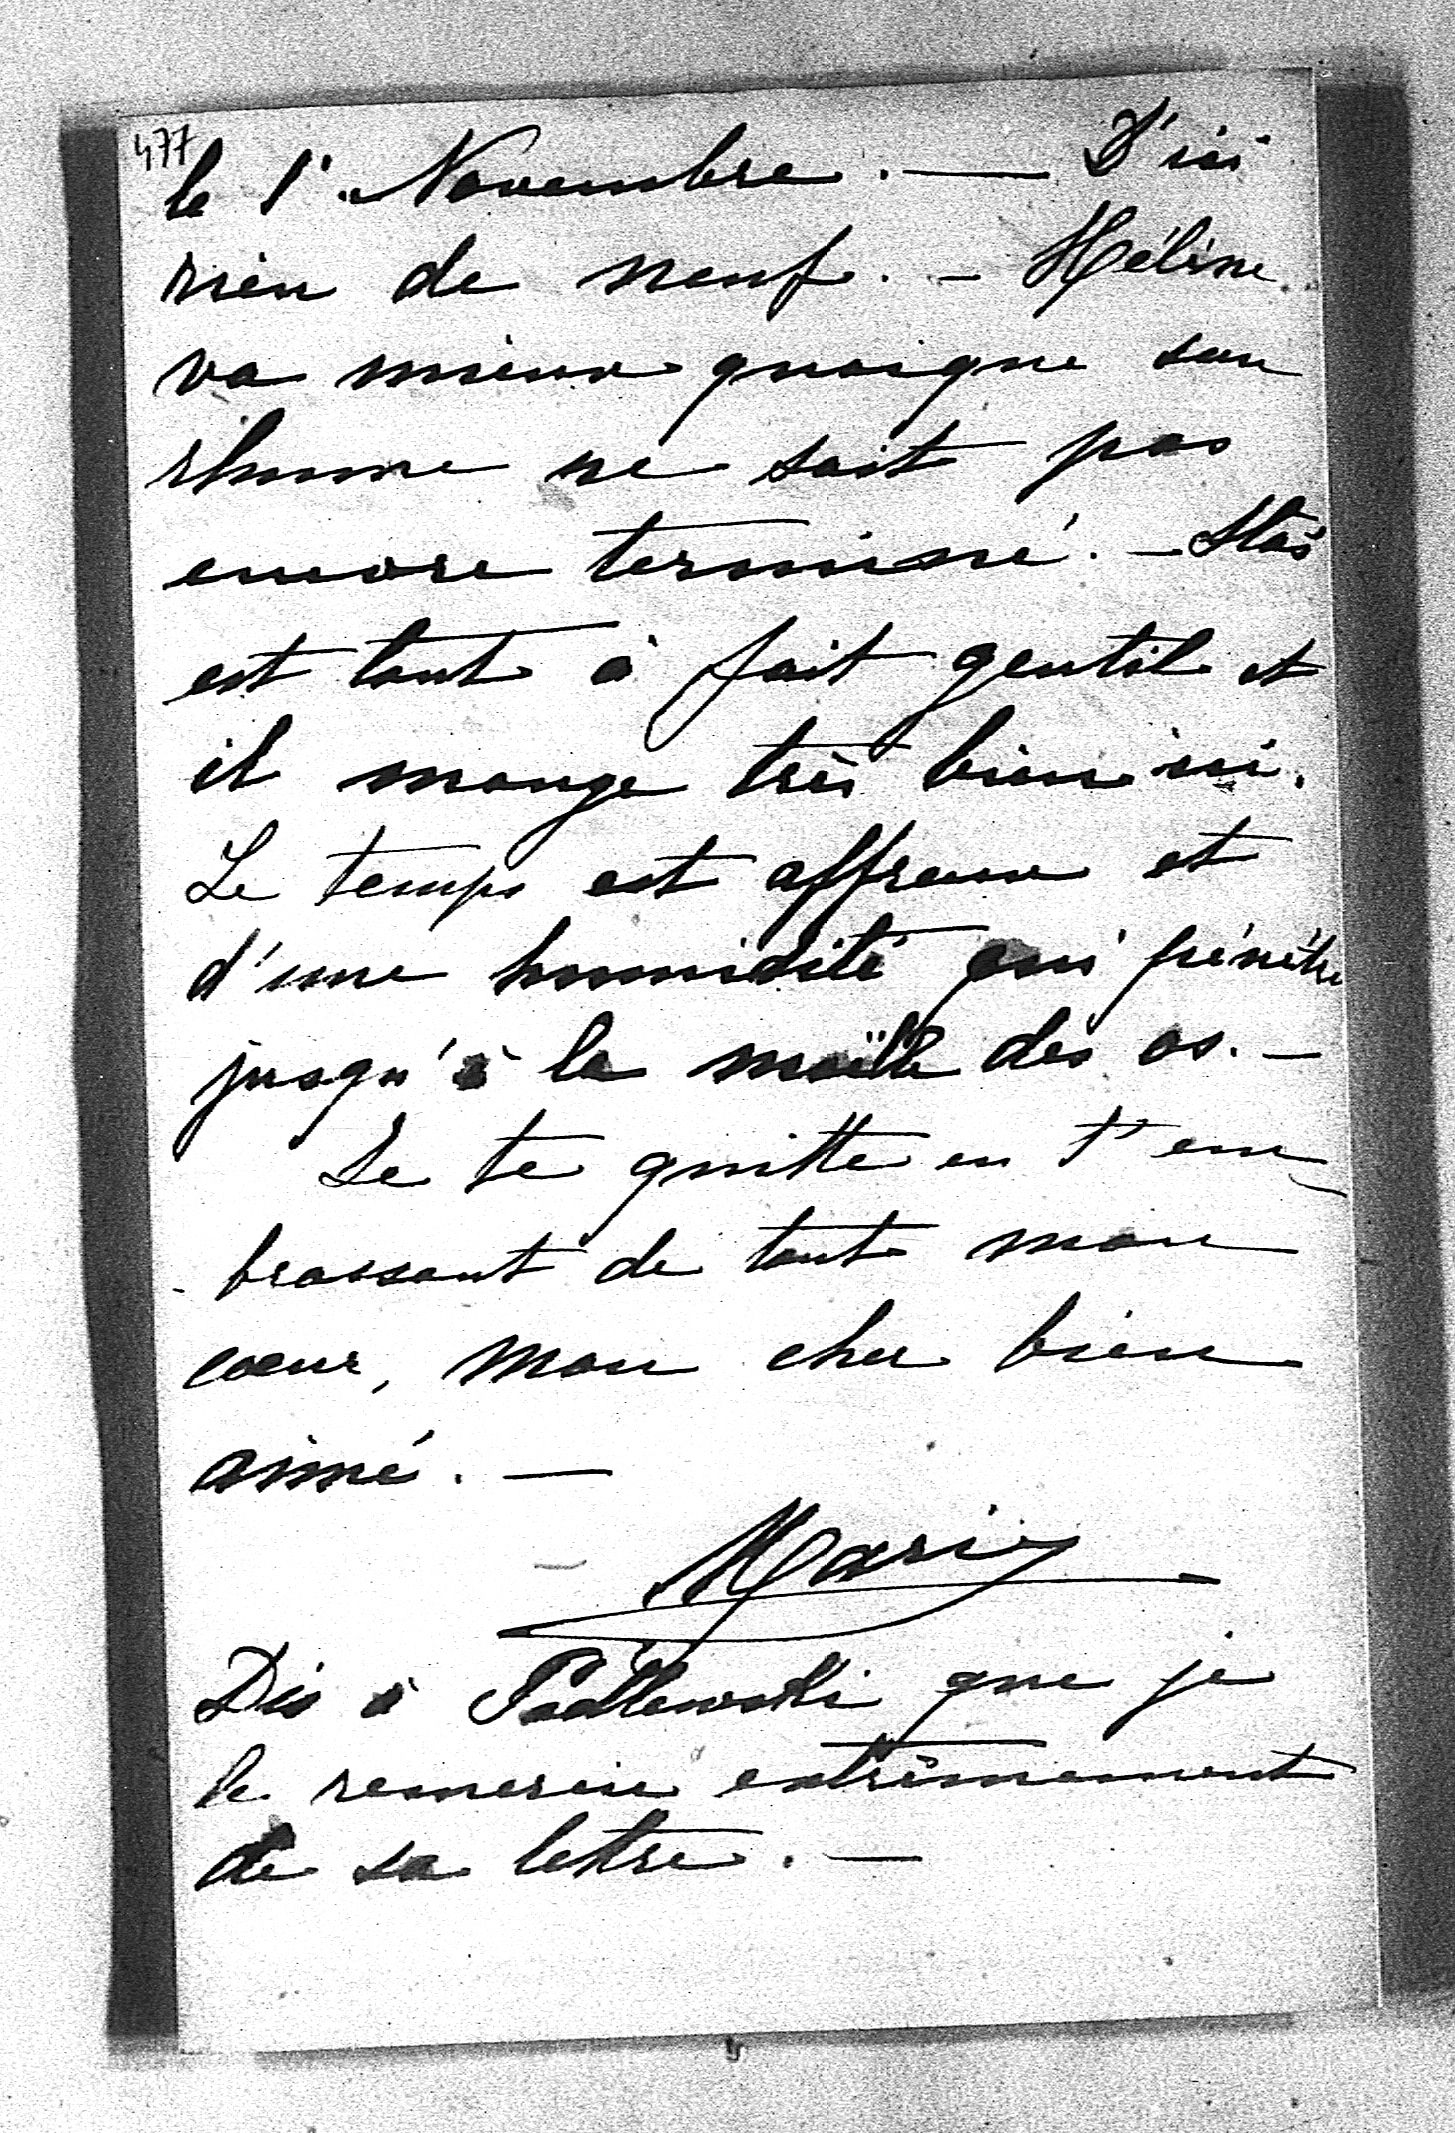 477
le 1r Novembre. — D'ici
rien de neuf. — Hélène
va mieux quoique son
rhume ne soit pas
encore terminé. — Staś
est tout à fait gentil et
il mange très bien ici.
Le temps est affreux et
d'une humidité qui pénètre
jusqu'à la moëlle des os. —
Je te quitte en t'em-
brassant de tout mon
coeur, mon cher bien
aimé. —
Marie
Dis à Podlewski que je
le remercie extrèmement
de sa lettre. —